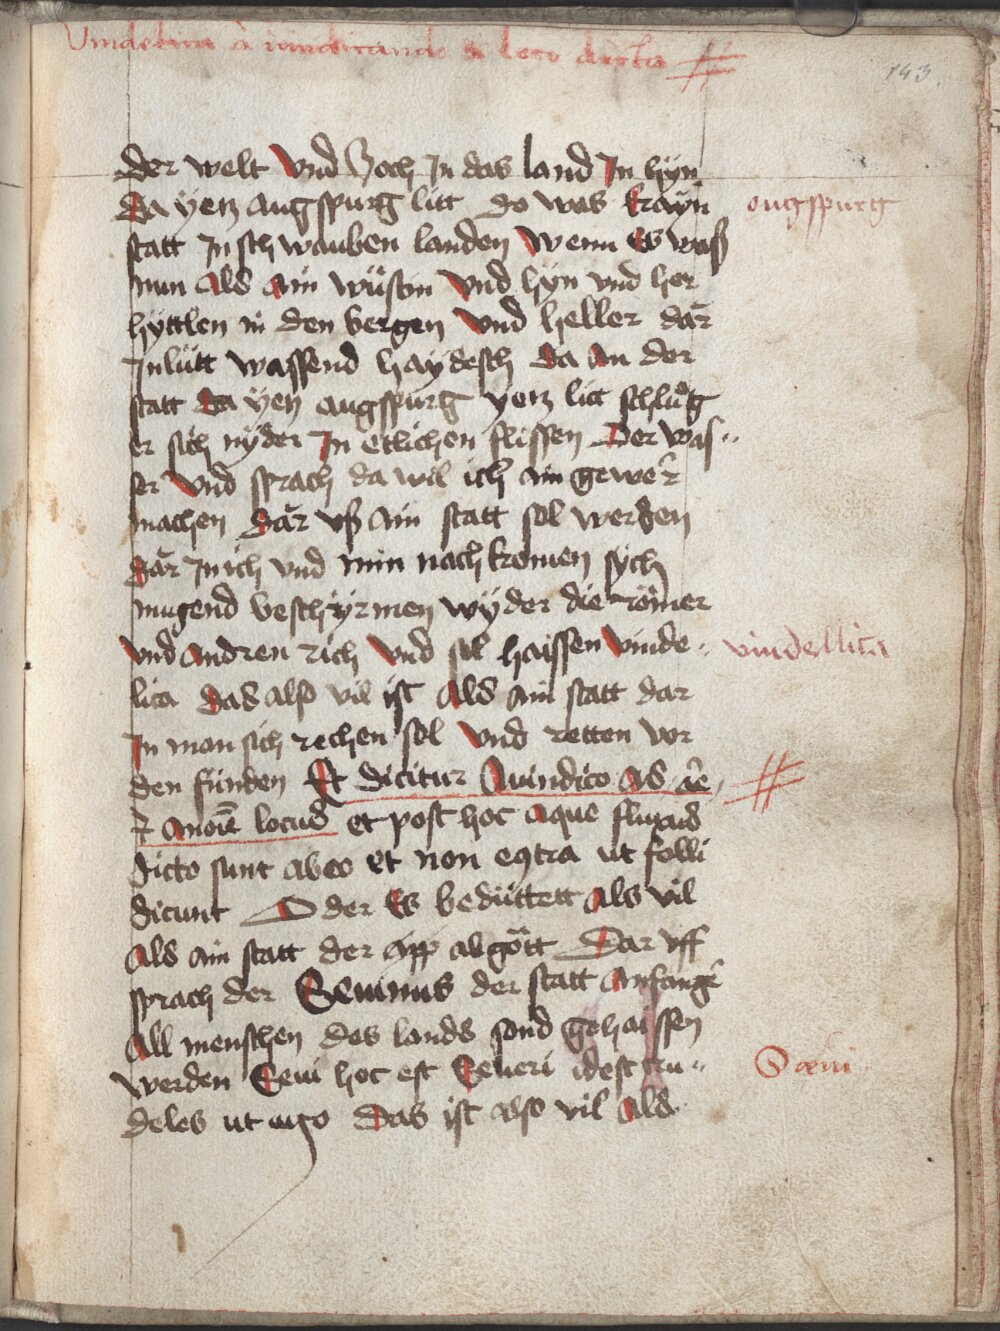 Vindelica à vindicando & loco dicta #
143.
der welt Vnd Zoch In das land In hyn
da yetz augspurg litt do was krayn
augspurg
statt In schwauben landen Wenn Es waß
nun Als ain wüstin Vnd hyn vnd her
hyttlen in den bergen Vnd heller där
Inlütt wassend haydesch da An der
statt da yetz augspurg yetz litt schlůg
er sich nyder In ettlichen flissen Der was¨
ser Vnd sprach da wil ich ain gewer
machen där vß ain statt sol werden
där In ich vnd min nachkomen sych
mugend beschyrmen wyder die römer
vnd andren rich Vnd sol haissen vinde¨
vindellica
lica das also vil ist Als ain statt dar
In man sich rechen sol Vnd retten vor
den finden Et dicitur A vindico as
locus et post hoc aque fluxus
dicto sunt ab eo et non extra ut folli
dicunt Oder Es bedüttett Als vil
Als ain statt der app abgött Dar vff
sprach der Seuinus der statt Anfang
All menschen des lands sond gehaissen
werden Seui hoc est Seueri id est cru¨
Sæui
deles ut ego Das ist also vil Als